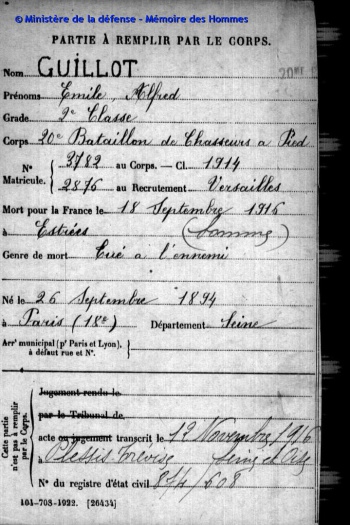 © Ministère de la défense - Mémoire des Hommes
PARTIE À REMPLIR PAR LE CORPS.
Nom GUILLOT
20ME
Prénoms Emile, Alfred
Grade 2e Classe
Corps 20e Bataillon de Chasseurs à Pied
N° 3782 au Corps. — Cl. 1914
Matricule. 2876 au Recrutement Versailles
Mort pour la France le 18 Septembre 1916
à Estrées (Somme)
Genre de mort Tué à l'ennemi
Né le 26 Septembre 1894
à Paris (18e) Département Seine
Arrt municipal (pr Paris et Lyon),
à défaut rue et N°.
Cette partie
n'est pas à remplir
par le Corps.
Jugement rendu le
par le Tribunal de
acte ou jugement transcrit le 12 Novembre 1916
à Plessis Trévise Seine et Oise
N° du registre d'état civil 844/608
101-708-1922. [26434]